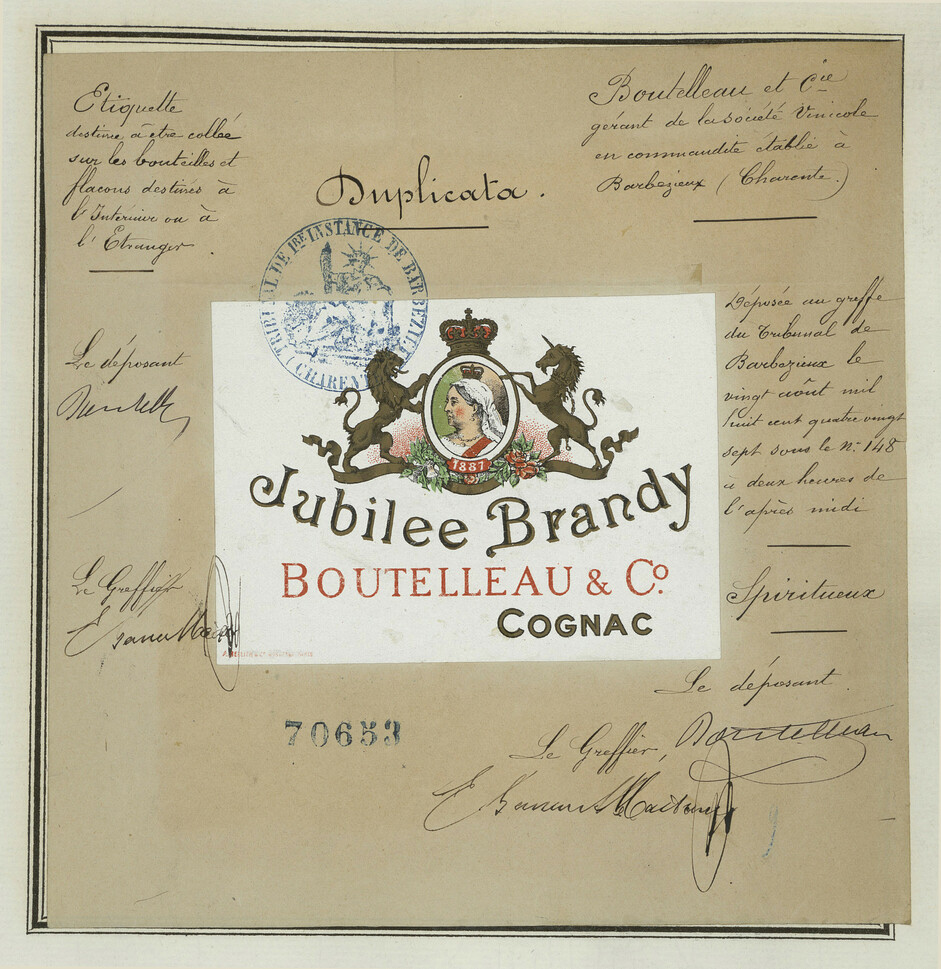 Etiquette
destinée à être collée
sur les bouteilles et
flacons destinés à
l'Intérieur ou à
l'Etranger
Duplicata.
Boutelleau et Cie
gérant de la société Vinicole
en commandite établie à
Barbezieux (Charente.)
TRIBUNAL DE 1RE INSTANCE DE BARBEZIEUX
(CHARENTE)
Le déposant
Le Greffier
1887
Jubilee Brandy
BOUTELLEAU & Co.
COGNAC
Déposée au greffe
du Tribunal de
Barbezieux le
vingt août mil
huit cent quatre vingt
sept sous le No 148
à deux heures de
l'après midi
Spiritueux
Le déposant
Boutelleau
Le Greffier,
70653